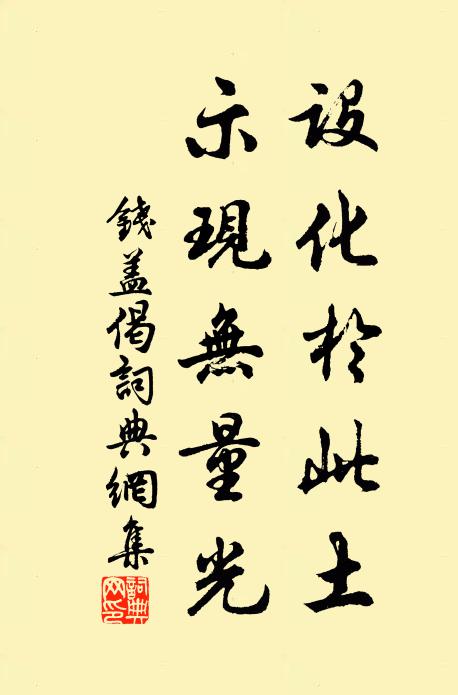 設化於此土
示現無量光
錢盖偈詞典網集
詞典網印